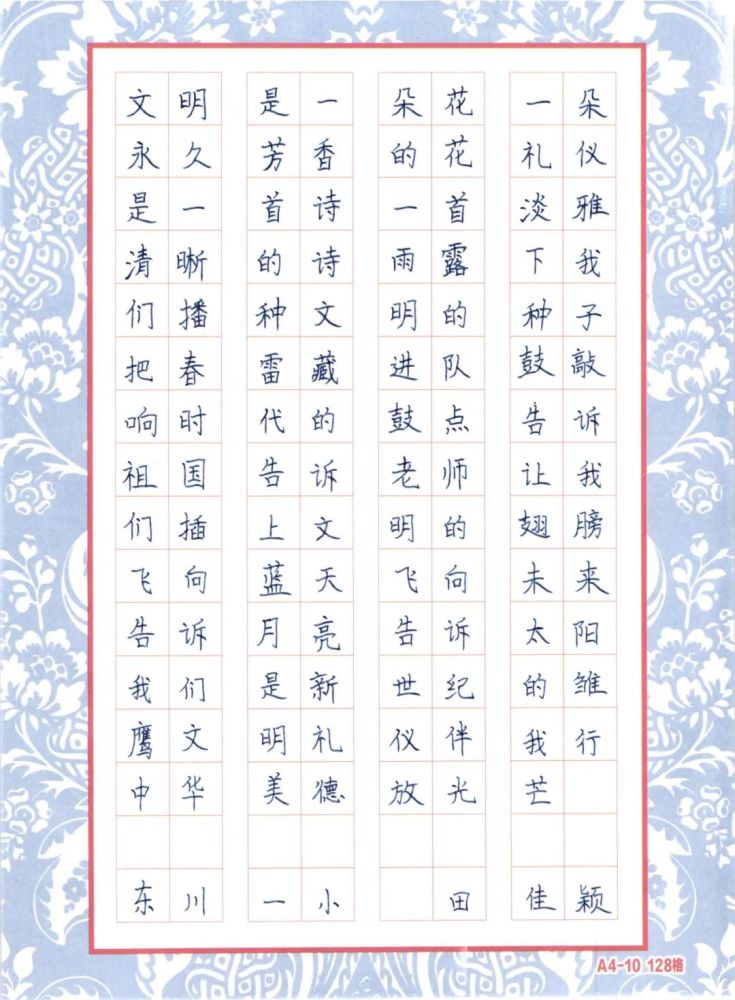 文明是一朵花一朵
永久芳香的花礼仪
是一首诗一首淡雅
清晰的诗雨露下我
们播种文明的种子
把春雷藏进队鼓敲
响时代的鼓点告诉
祖国告诉老师让我
们插上文明的翅膀
飞向蓝天飞向未来
告诉月亮告诉太阳
我们是新世纪的雏
鹰文明礼仪伴我行
中华美德放光芒
东川一小 田佳颖
A4-10 128格